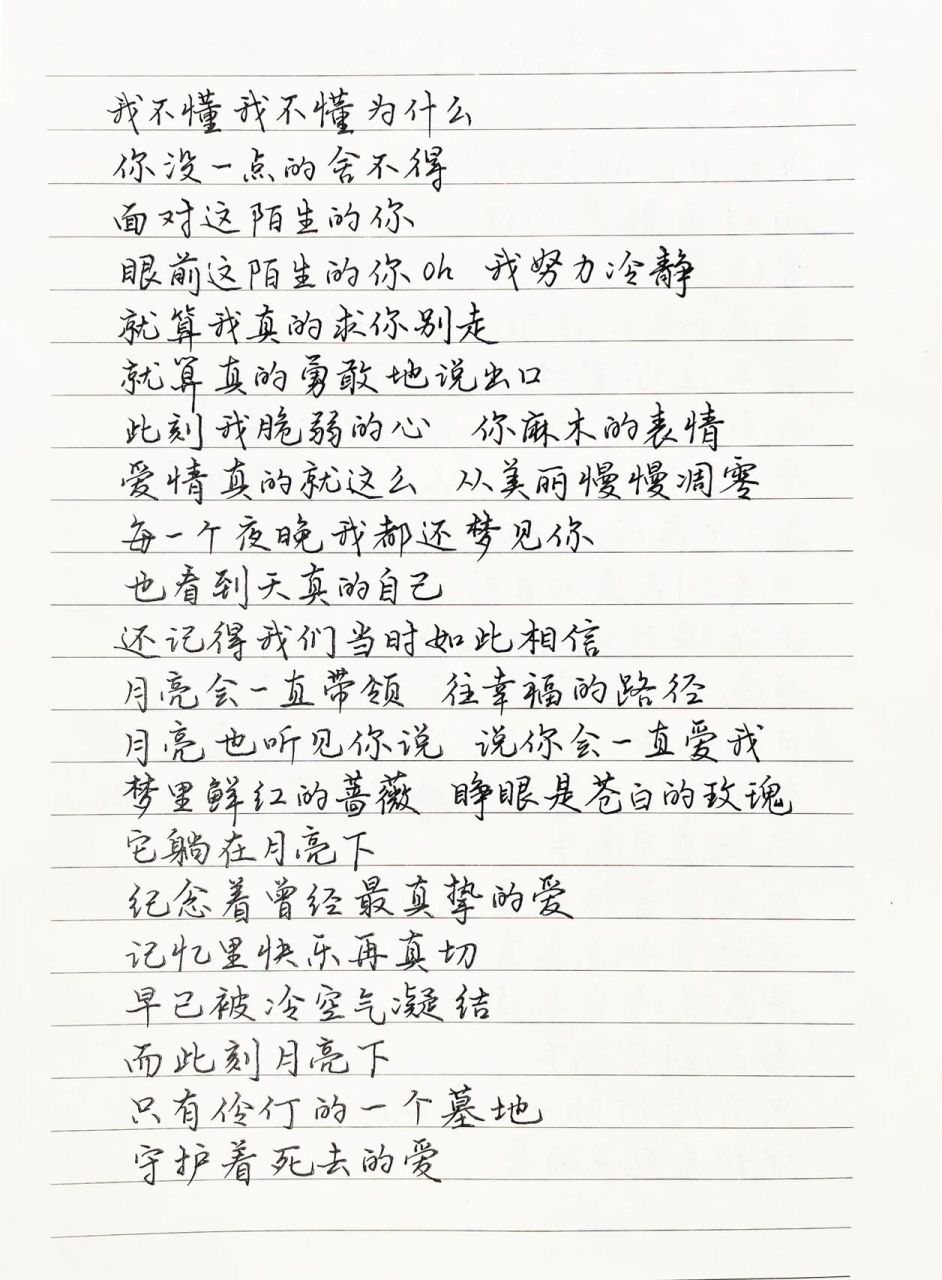 我不懂我不懂为什么
你没一点的舍不得
面对这陌生的你
眼前这陌生的你oh 我努力冷静
就算我真的求你别走
就算真的勇敢地说出口
此刻我脆弱的心 你麻木的表情
爱情真的就这么 从美丽慢慢凋零
每一个夜晚我都还梦见你
也看到天真的自己
还记得我们当时如此相信
月亮会一直带领 往幸福的路径
月亮也听见你说 说你会一直爱我
梦里鲜红的蔷薇 睁眼是苍白的玫瑰
它躺在月亮下
纪念着曾经最真挚的爱
记忆里快乐再真切
早已被冷空气凝结
而此刻月亮下
只有伶仃的一个墓地
守护着死去的爱